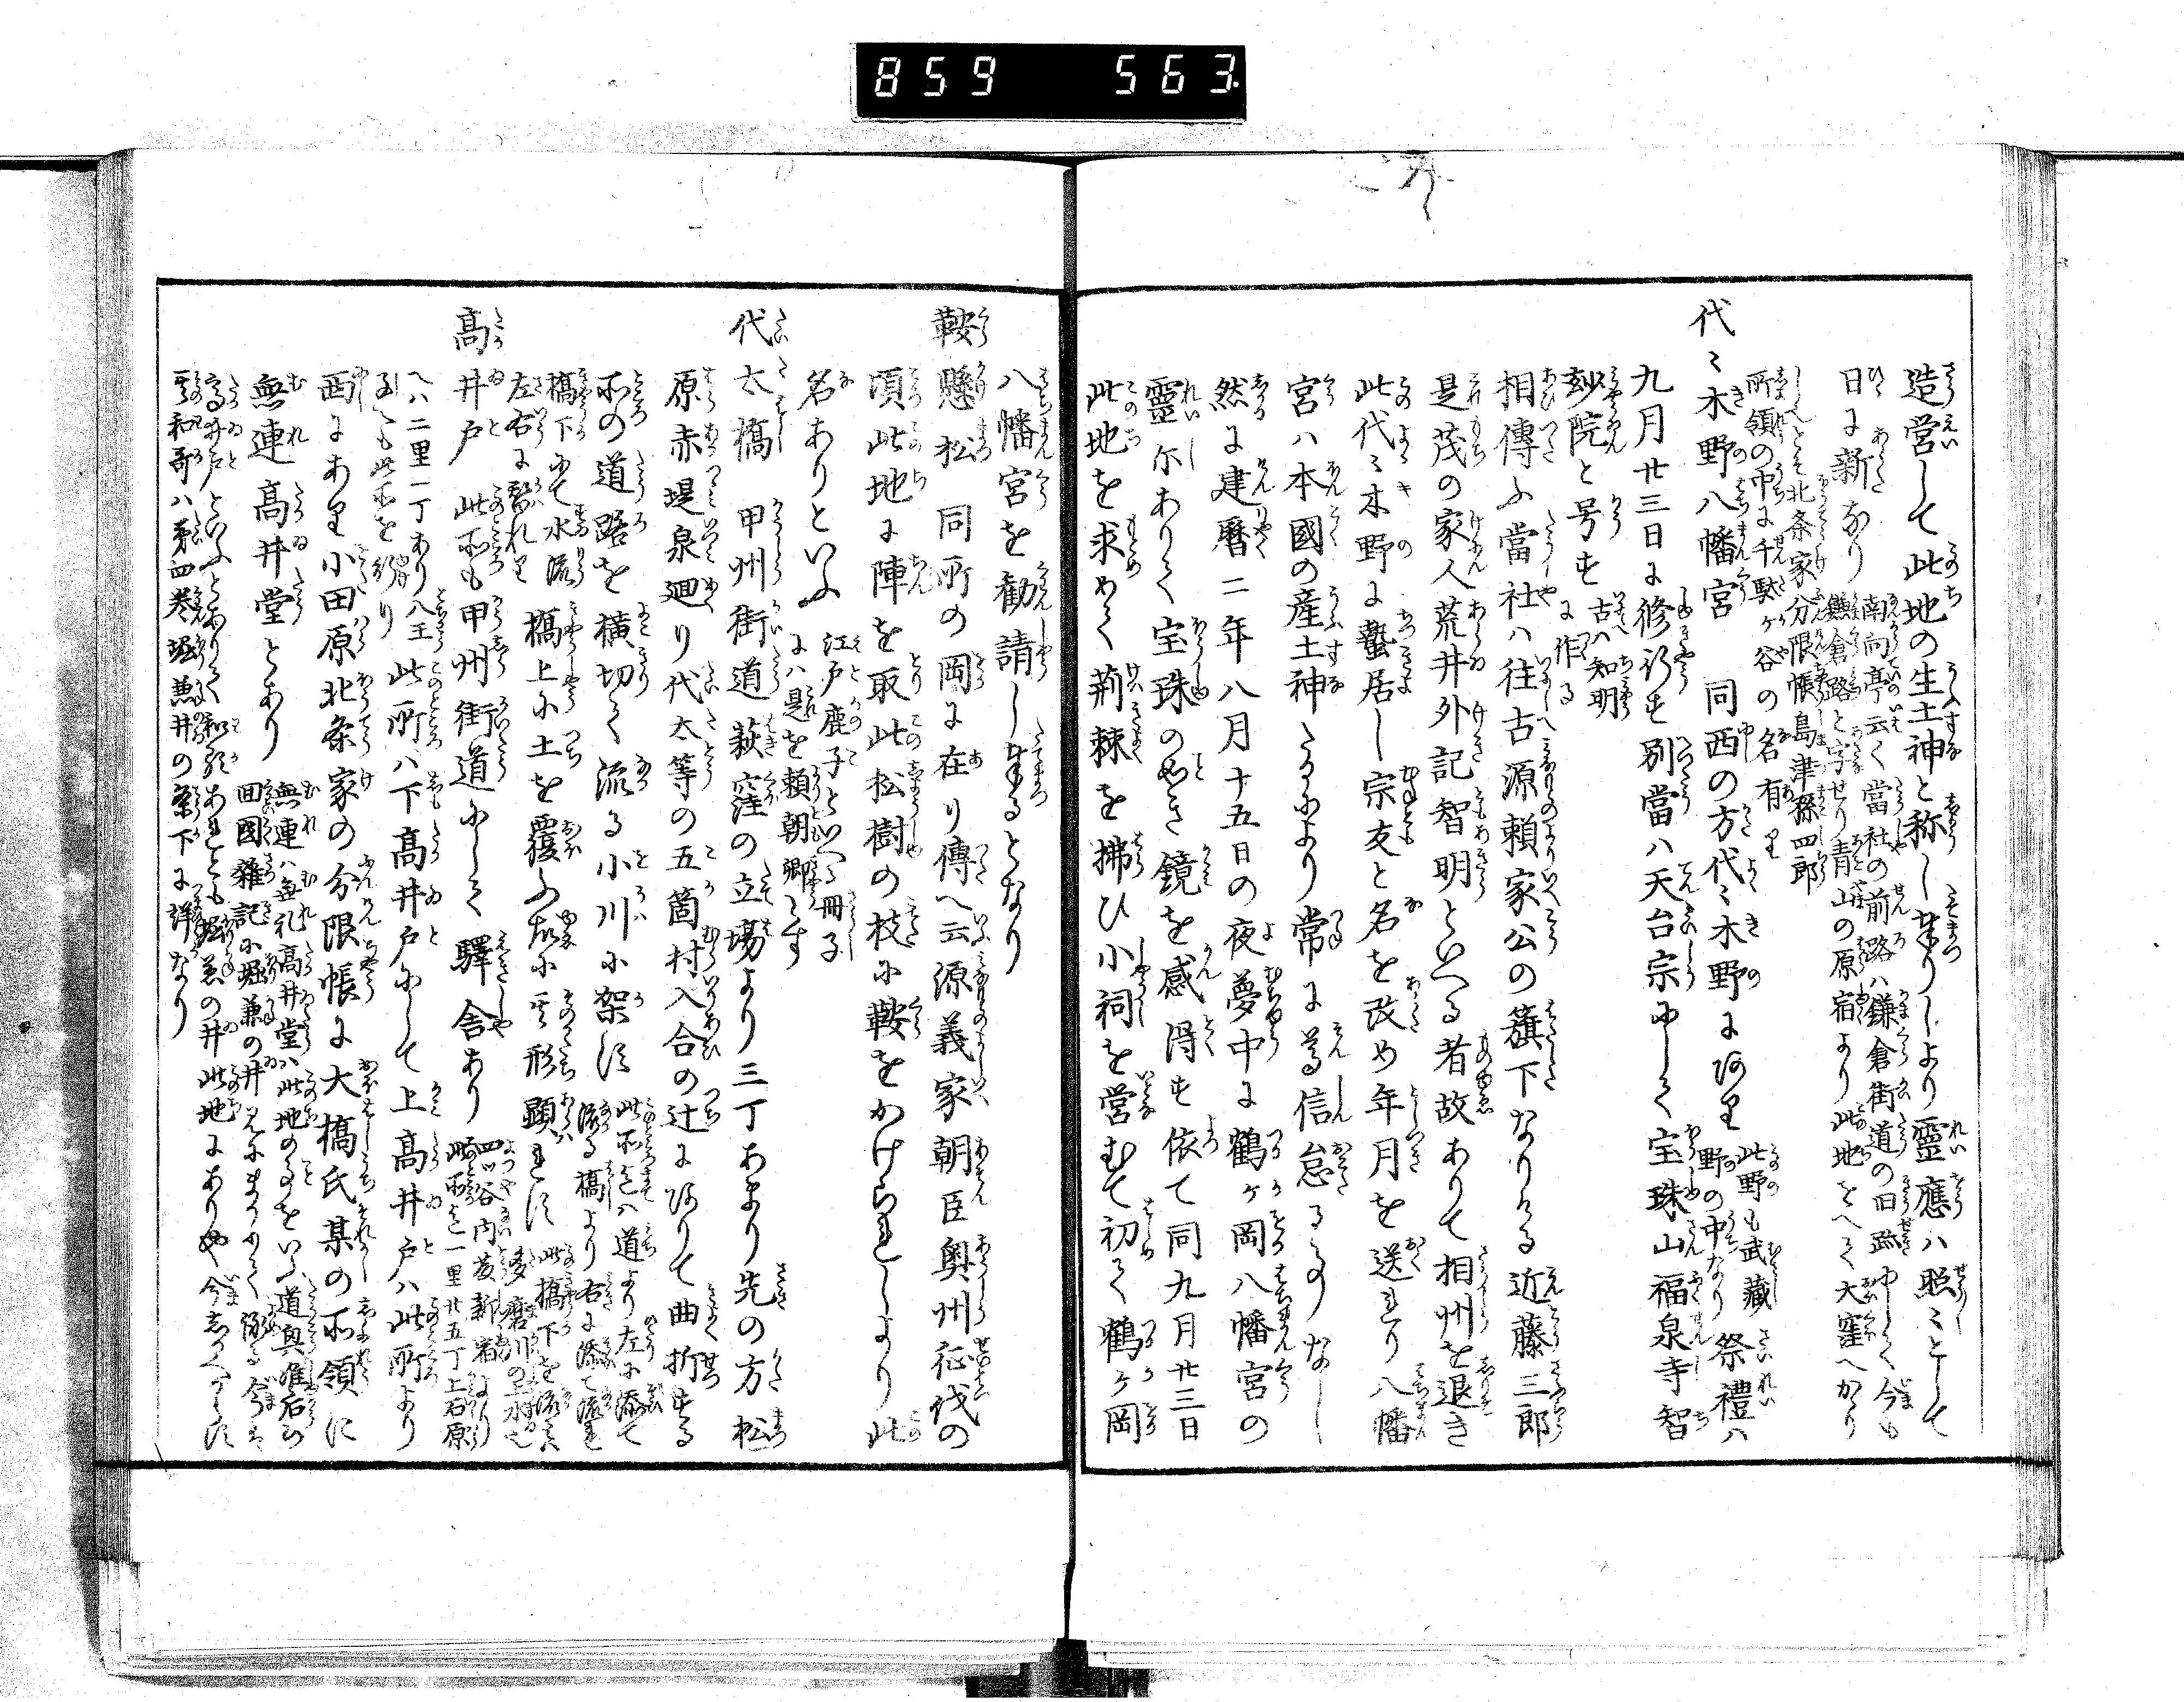 859 563
造営して此地の生土神と称し奉りしより靈應ハ照〻として
日に新なり
南向亭云く當社の前路ハ鎌倉街道の旧跡にして今も
鎌倉路と字せり青山の原宿より此地をへて大窪へかゝり
しとそ北条家分限帳島津孫四郎
所領の中に千駄ヶ谷の名有り
代〻木野八幡宮 同西の方代〻木野にあり
此野も武藏
野の中なり
祭禮ハ
九月廿三日に修行す別當ハ天台宗にして宝珠山福泉寺智
玅院と号す
古ハ知明
に作る
相傳ふ當社ハ往古源頼家公の籏下なりける近藤三郎
是茂の家人荒井外記智明といへる者故ありて相州を退き
此代〻木野に蟄居し宗友と名を改め年月を送れり八幡
宮ハ本國の産土神たるにより常に尊信怠る事なし
然に建暦二年八月十五日の夜夢中に鶴ヶ岡八幡宮の
靈示ありて宝珠の如き鏡を感得す依て同九月廿三日
此地を求めて荊棘を拂ひ小祠を営むて初て鶴ヶ岡
八幡宮を勧請し奉るとなり
鞍懸松 同所の岡に在り傳へ云源義家朝臣奥州征伐の
頃此地に陣を取此松樹の枝に鞍をかけられしより此
名ありといふ
江戸鹿子といへる冊子
にハ是を頼朝卿とす
代太橋 甲州街道萩窪の立場より三丁あまり先の方松
原赤堤泉廻り代太等の五箇村入合の辻にありて曲折する
所の道路を横切て流る小川に架す
此所迄ハ道より左に添て
流る橋より右に添て流れ
橋下にて水流
左右に替れり
橋上に土を覆ふ故に其形顕れす
此橋下を流るゝハ
多磨川の上水也
高井戸 此所も甲州街道にして驛舎あり
四ッ谷内藤新宿より
此所迄一里廿五丁上石原
へハ二里一丁あり八王
子も此所を
此所ハ下高井戸にして上高井戸ハ此所より
西にあり小田原北条家の分限帳に大橋氏某の所領に
無連高井堂とあり
無連ハ無礼高井堂ハ此地の事をいふ道興准后の
回國雑記に堀兼の井見にまかりてよめる今ハ
高井戸といふとありて和歌あれとも堀兼の井此地にありや今志るへからす
其和哥ハ第四巻堀兼井の条下に詳なり